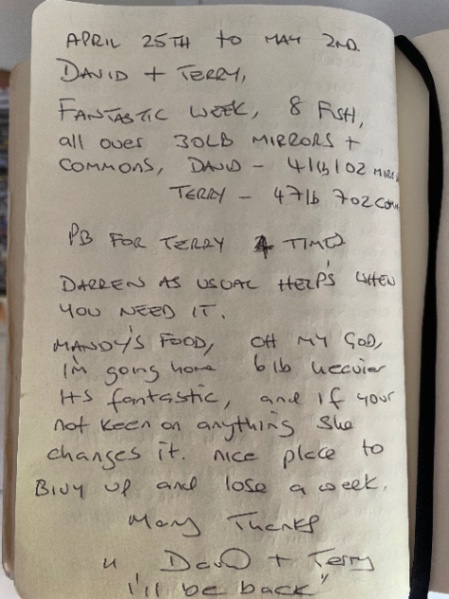 APRIL 25TH to MAY 2ND.
DAVID + TERRY,
FANTASTIC WEEK, 8 FISH,
all over 30LB MIRRORS +
COMMONS, DAVID - 41lb 1oz
TERRY - 47lb 7oz
PB FOR TERRY 4 TIMES
DARREN AS USUAL HELPS WHEN
YOU NEED IT.
MANDY'S FOOD, OH MY GOD,
I'm going home 6lb heavier
Its fantastic, and if your
not keen on anything she
changes it. nice place to
BIVY UP and lose a week.
Many Thanks
David + Terry
"I'll be back"